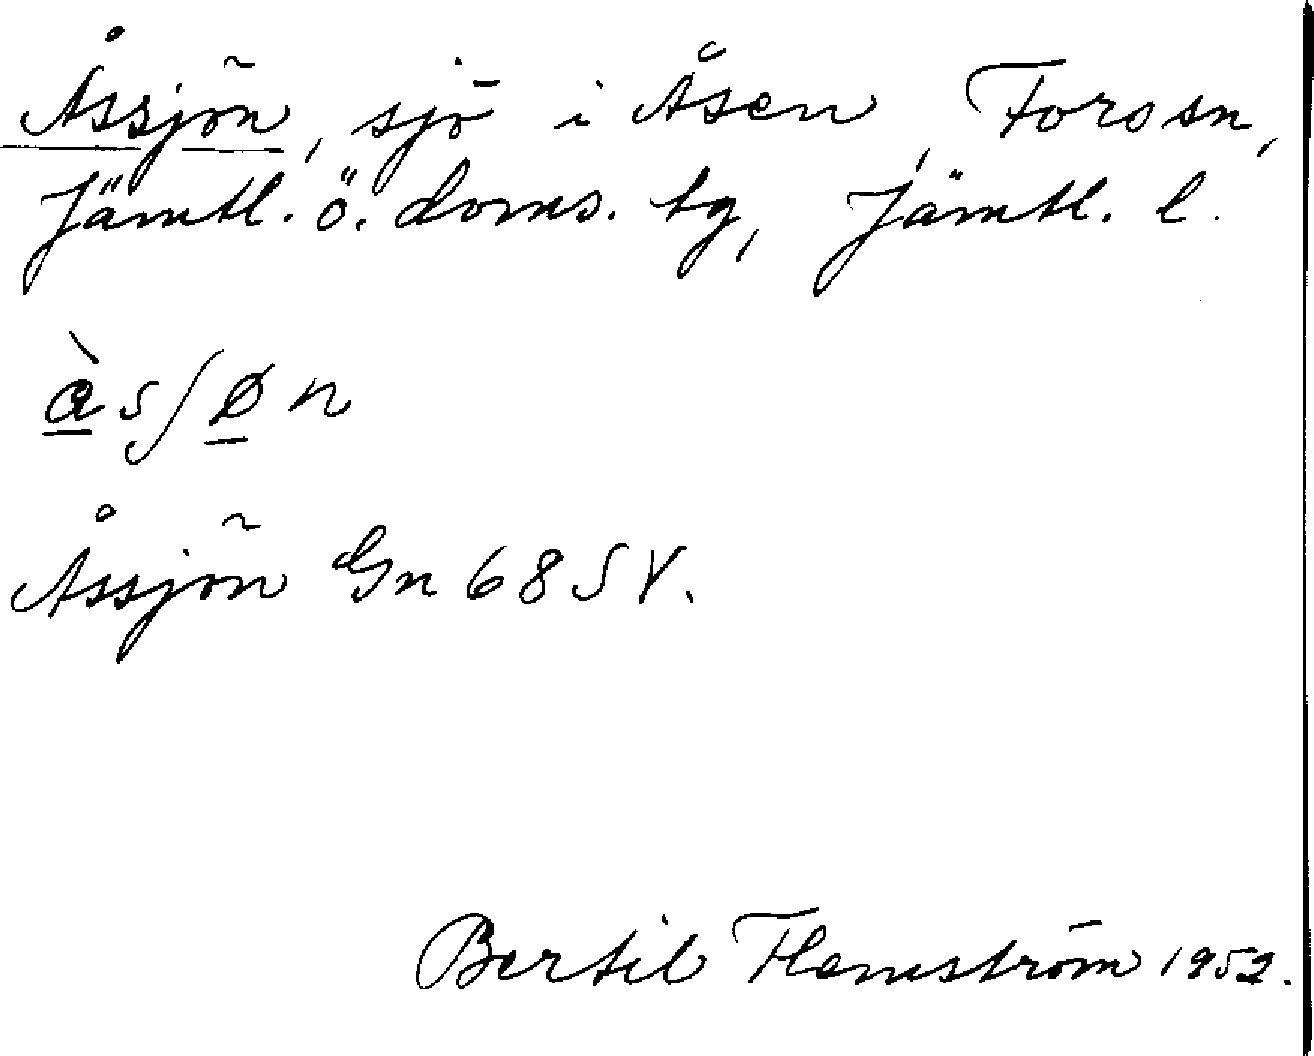 Åssjön, sjö i Åsen, Fors sn,
Jämtl. ö. doms. tg, Jämtl. l.
à̱sʃø̱n
Åssjön Gn 68 SV.
Bertil Flemström 1952.